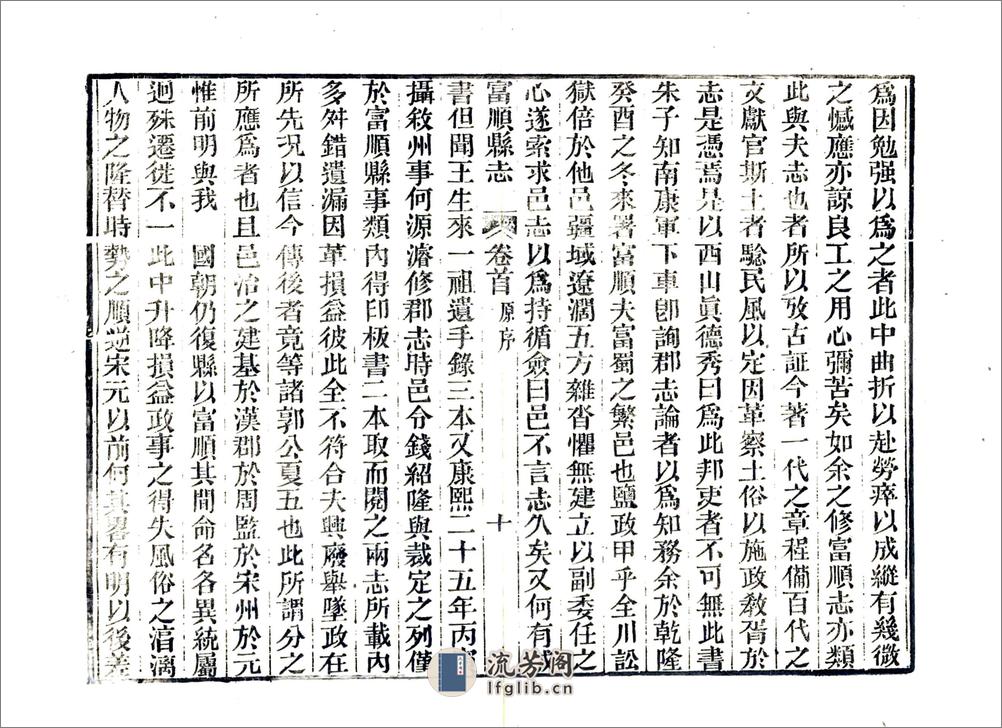 爲因勉强以爲之者此中曲折以赴勞瘁以成縱有幾微
之憾應亦諒良工之用心彌苦矣如余之修富順志亦類
此與夫志也者所以攷古証今著一代之章程備百代之
文獻官斯土者騐民風以定因革察土俗以施政敎胥於
志是憑焉是以西山眞德秀曰爲此邦吏者不可無此書
朱子知南康軍下車卽詢郡志論者以爲知務余於乾隆
癸酉之冬來署富順夫富蜀之繁邑也鹽政甲乎全川訟
獄倍於他邑疆域遼濶五方雜沓懼無建立以副委任之
心遂索求邑志以爲持循僉曰邑不言志久矣又何有成
富順縣志 卷首 原序 十
書但聞王生來一祖遺手錄三本又康熙二十五年丙寅
攝敘州事何源濬修郡志時邑分錢紹隆與裁定之列僅
於富順縣事類內得印板書二本取而閱之兩志所載內
多舛錯遺漏因革損益彼此全不符合夫興廢舉墜政在
所先況以信今傳後者竟等諸郭公夏五也此所謂分之
所應爲者也且邑治之建基於漢郡於周監於宋州於元
惟前明與我 國朝仍復縣以富順其間命名各異統屬
迥殊遷徙不一此中升降損益政事之得失風俗之淳漓
人物之隆替時勢之順逆宋元以前何其畧有明以後差
流芳阁
lfglib.cn